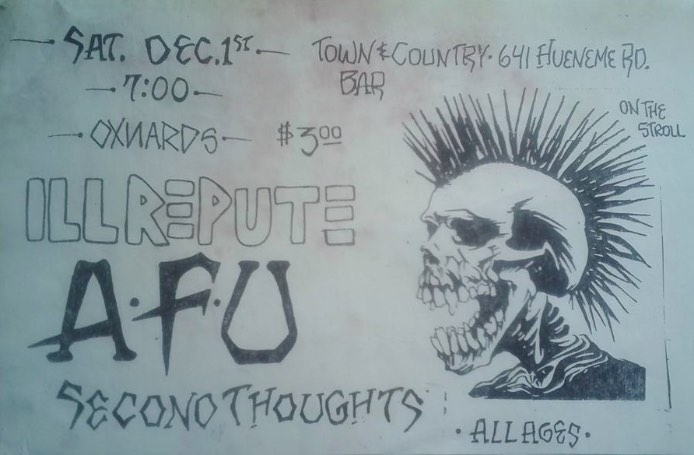 SAT. DEC. 1ST.
7:00
OXNARDS $3.00
TOWN & COUNTRY · 641 HUENEME RD.
BAR
ON THE
STROLL
ILL REPUTE
A·F·U
SECOND THOUGHTS
· ALL AGES ·